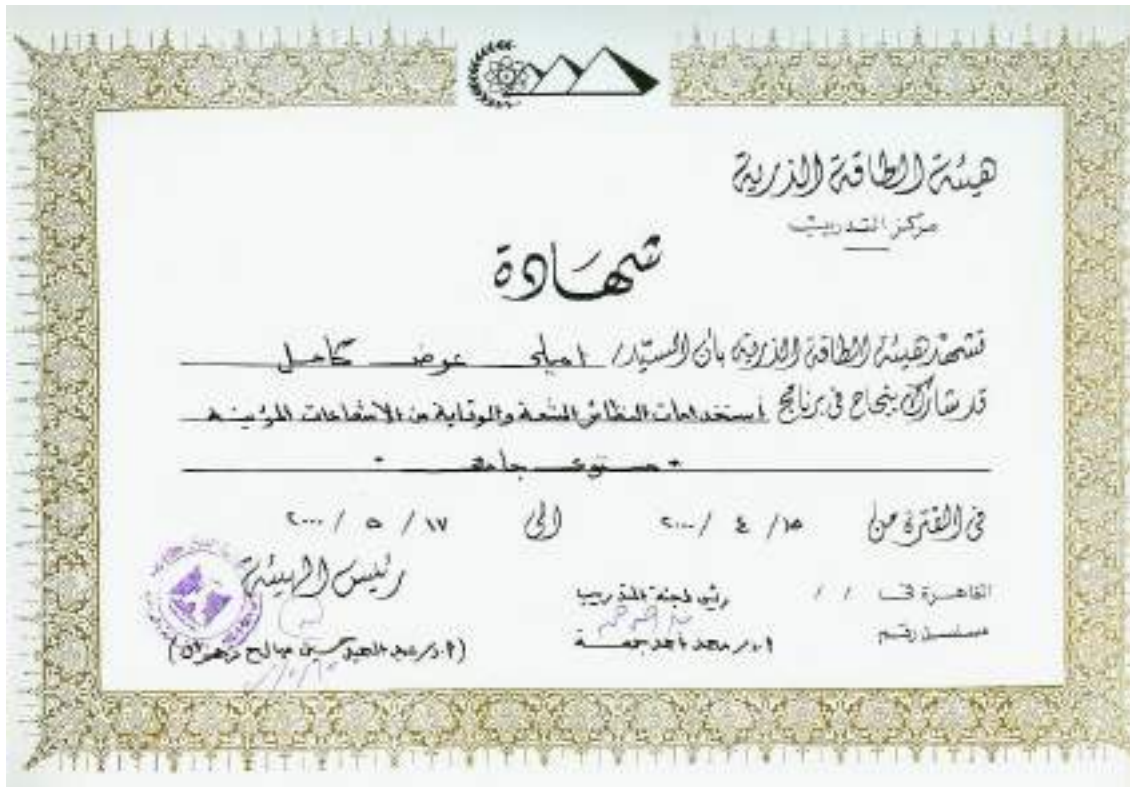 هيئة الطاقة الذرية
مركز التدريب
شهادة
تشهد هيئة الطاقة الذرية بأن السيد / اميلى عوض كامل
قد شارك بنجاح فى برنامج أستخدامات النظائر المشعة والوقاية من الاشعاعات المؤينه
" مستوى جامعى "
فى الفترة من ١٥ / ٤ / ٢٠٠٠ الى ١٧ / ٥ / ٢٠٠٠
القاهرة فى / /
رئيس لجنة التدريب
رئيس الهيئة
مسلسل رقم
أ.د. محمد احمد جمعة
(أ.د. عبد الحميد صالح زهران)